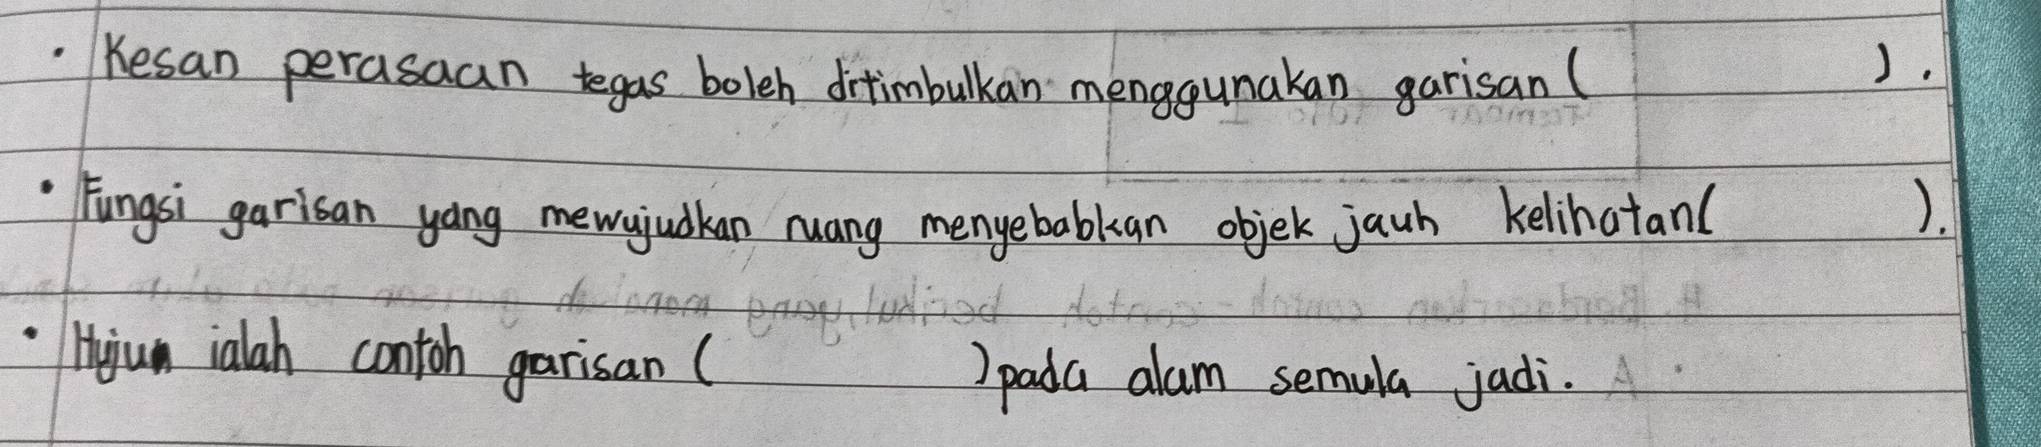 • Kesan perasaan tegas boleh ditimbulkan menggunakan garisan ( ).
• Fungsi garisan yang mewujudkan ruang menyebabkan objek jauh kelihatan ( ).
• Hujun ialah contoh garisan ( ) pada alam semula jadi.